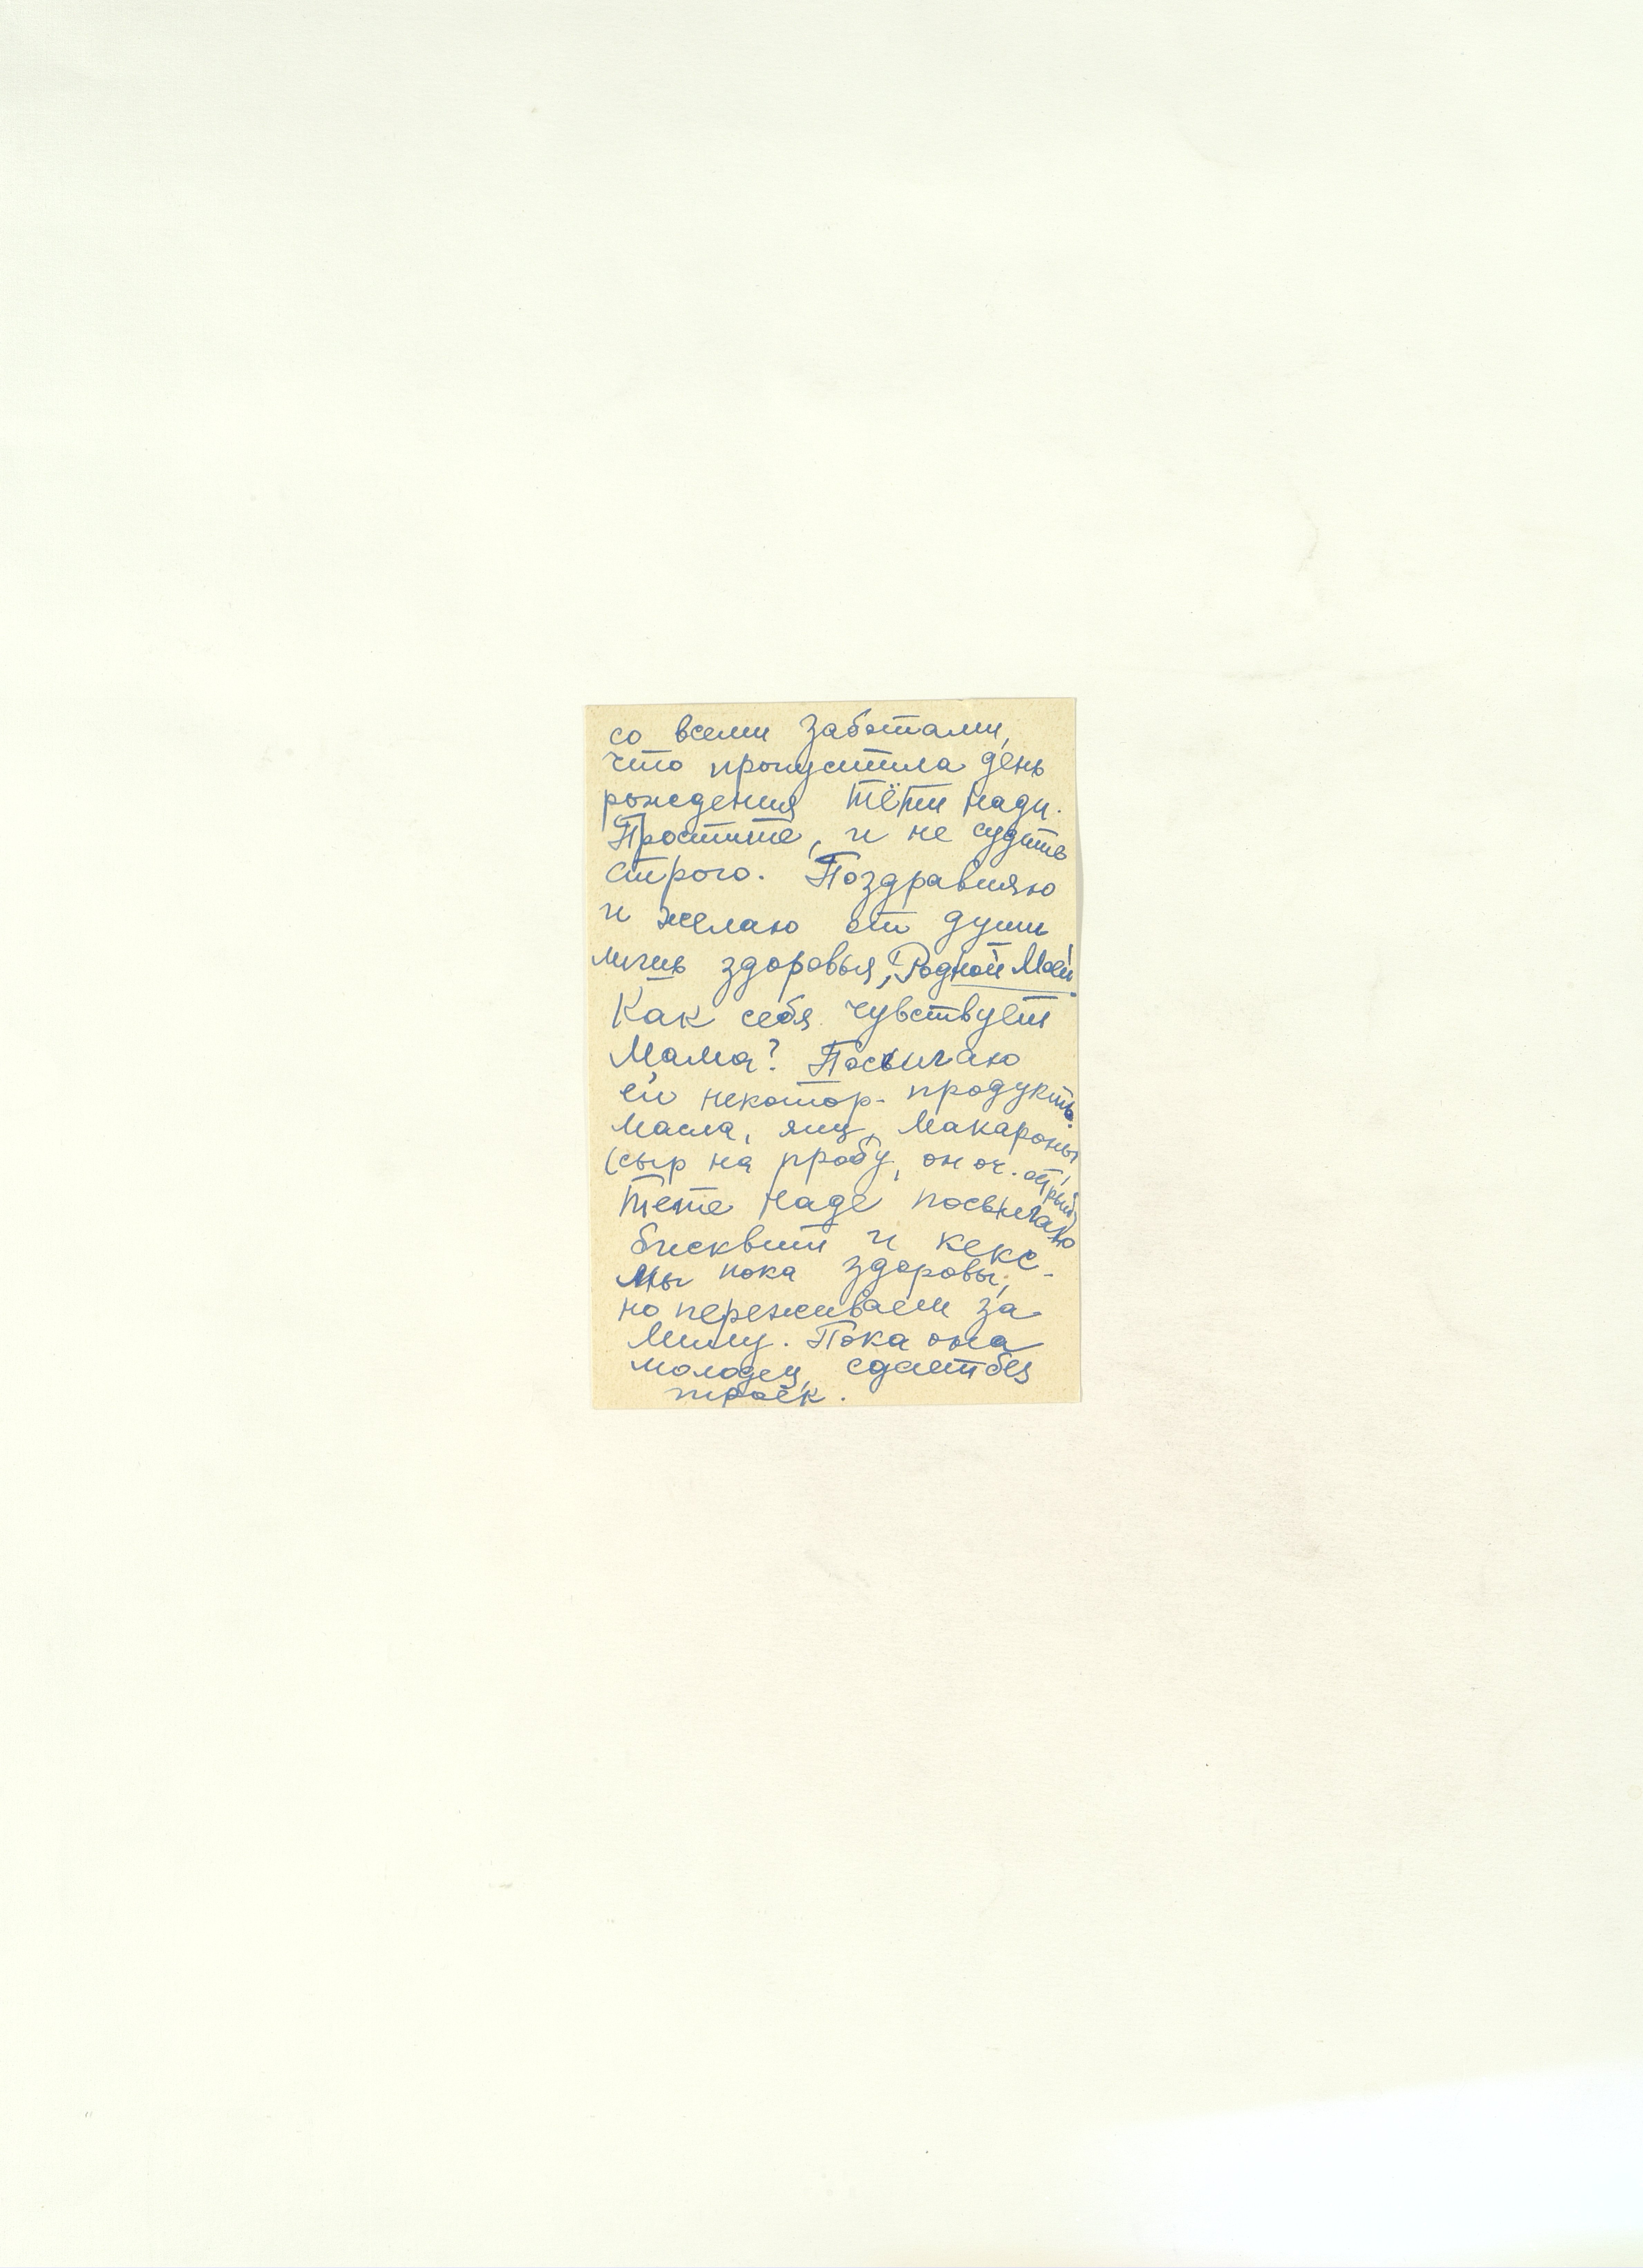 со всеми заботами,
что пропустила день
рождения тёти Нади.
Простите, и не судить
строго. Поздравляю
и желаю от души
лишь здоровья, Родной Моей.
Как себя чувствует
Мама? Посылаю
ей некотор. продукты.
масла, яиц, макароны,
(сыр на пробу, он оч. острый)
Тёте Наде посылаю
бисквит и кекс.
Мы пока здоровы,
но переживаем за
Миму. Пока она
молодец, сдаёт без
троек.